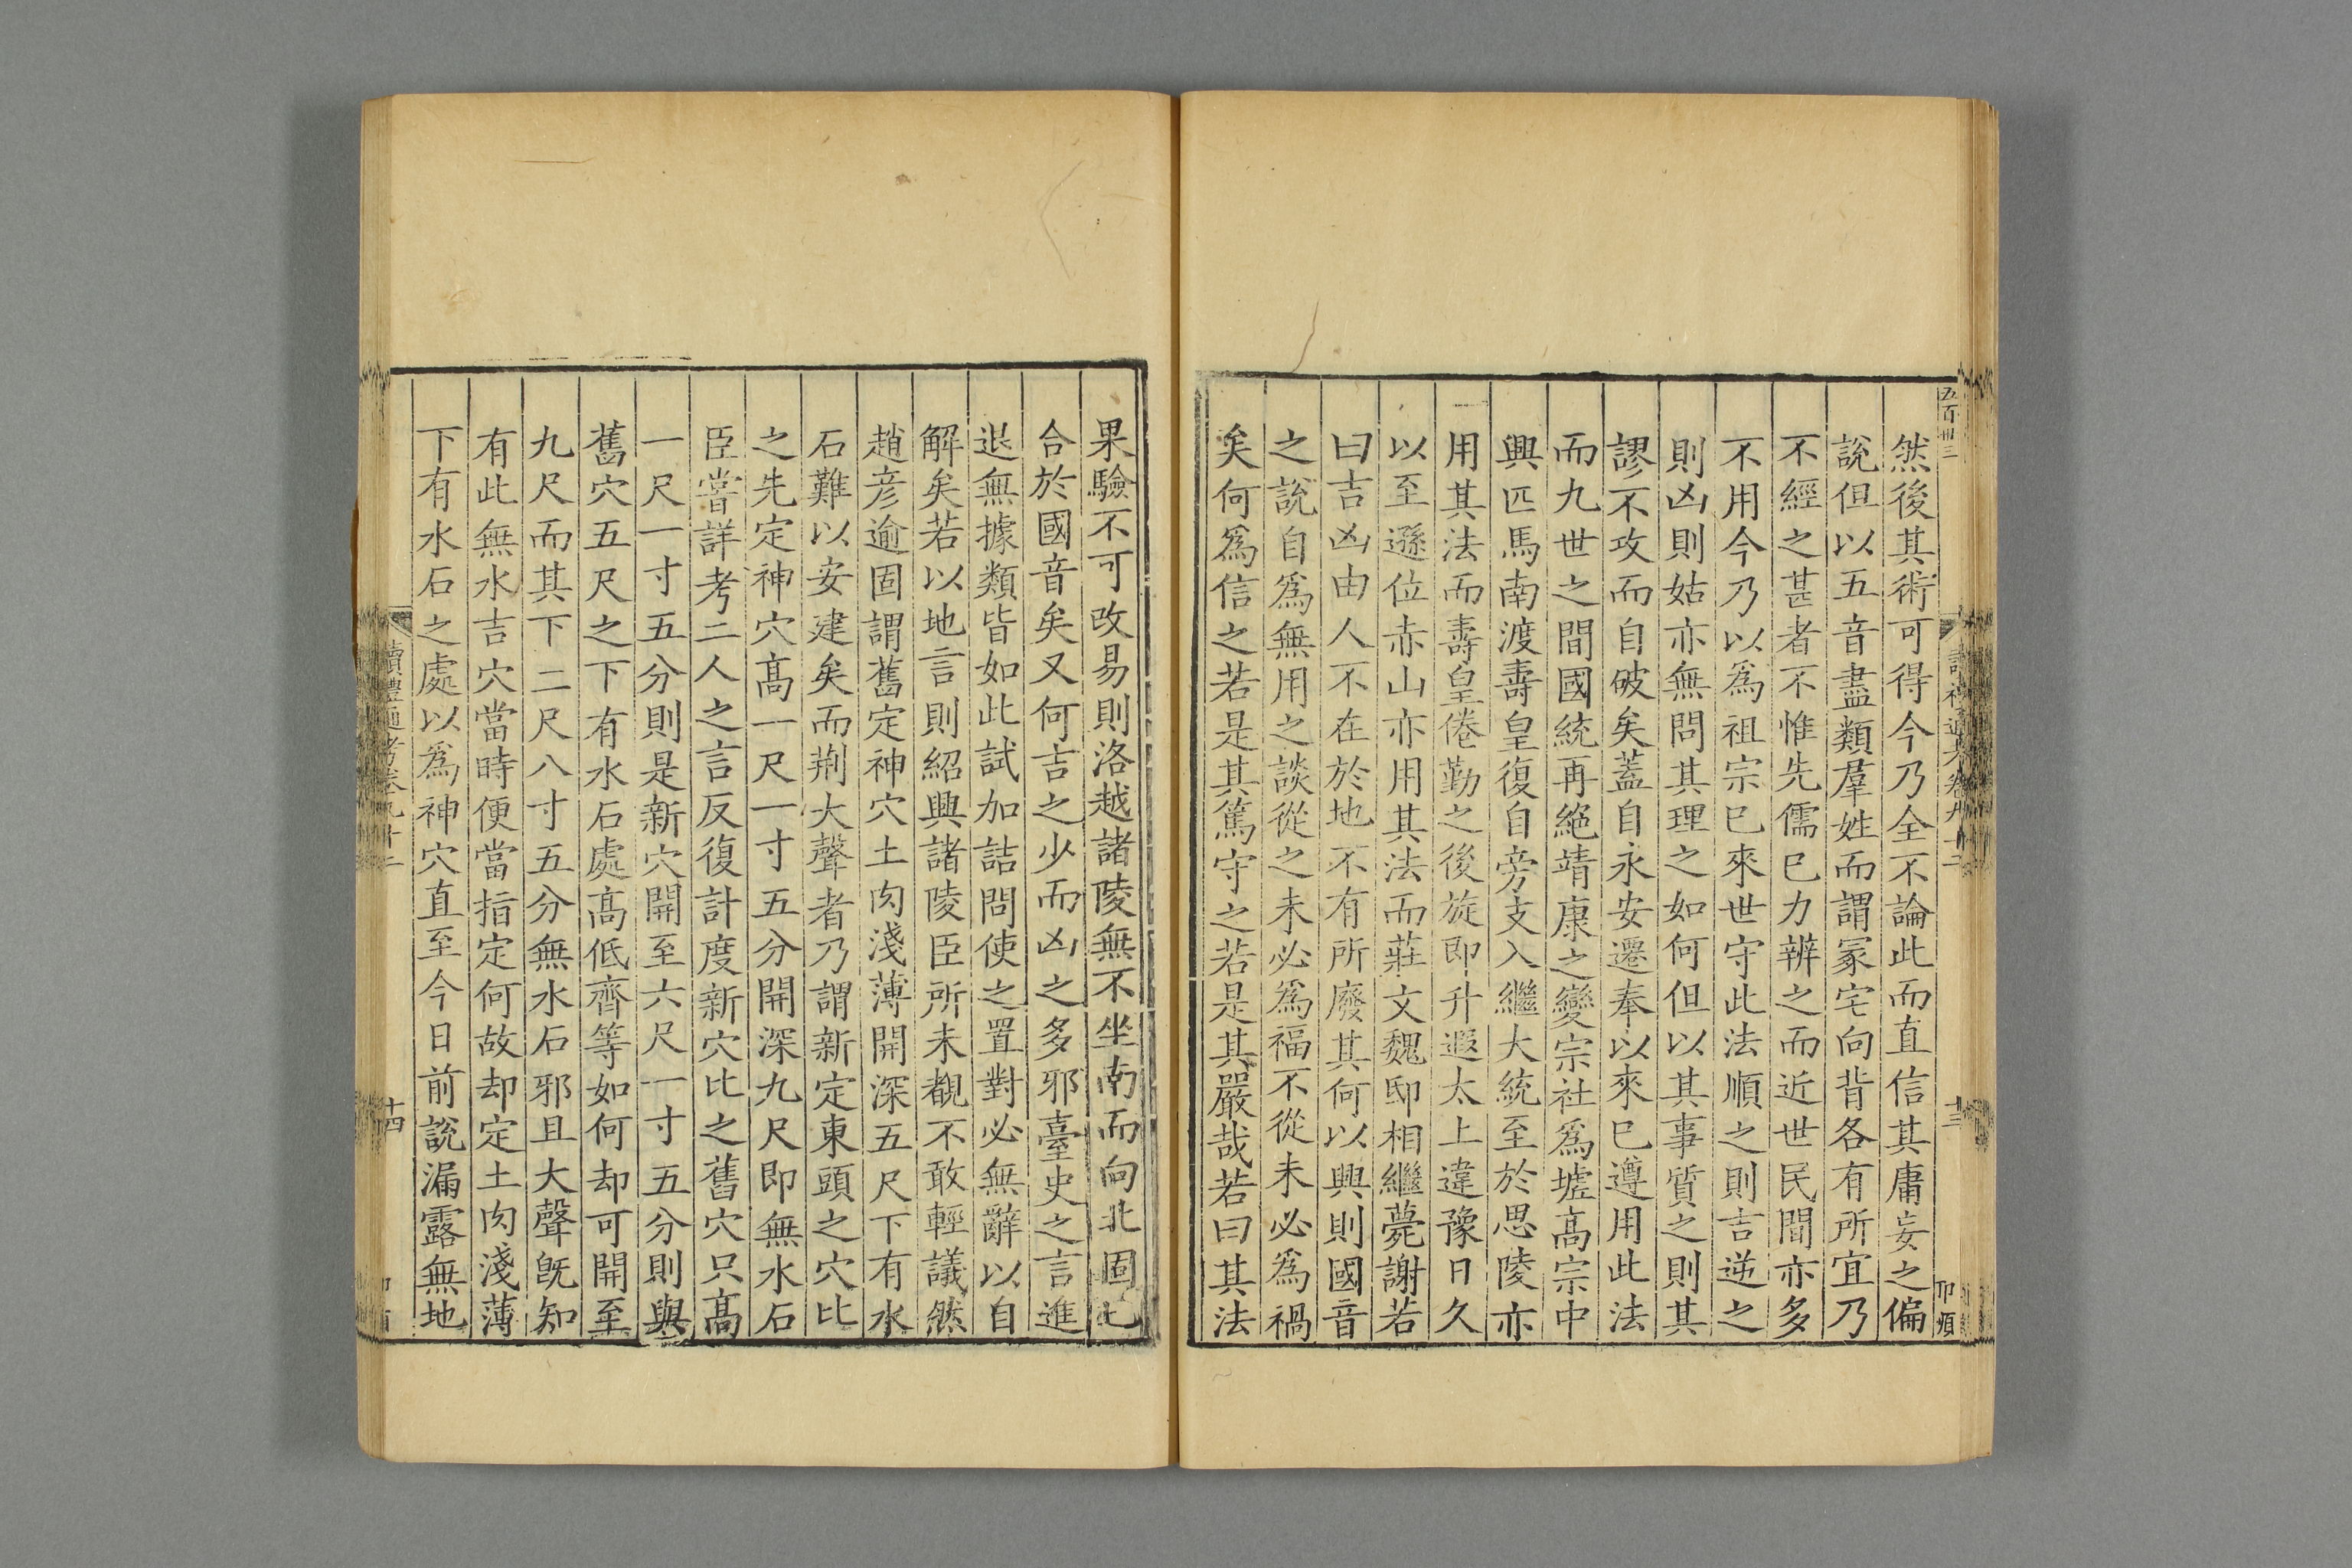 五百卅三
讀禮通考卷九十二
十三
然後其術可得今乃全不論此而直信其庸妄之偏
說但以五音盡類羣姓而謂冢宅向背各有所宜乃
不經之甚者不惟先儒已力辨之而近世民間亦多
不用今乃以爲祖宗已來世守此法順之則吉逆之
則凶則姑亦無問其理之如何但以其事質之則其
謬不攻而自破矣蓋自永安遷奉以來已遵用此法
而九世之間國統再絕靖康之變宗社爲墟高宗中
興匹馬南渡壽皇復自旁支入繼大統至於思陵亦
用其法而壽皇倦勤之後旋即升遐太上違豫日久
以至遜位赤山亦用其法而莊文魏邸相繼薨謝若
曰吉凶由人不在於地不有所廢其何以興則國音
之說自爲無用之談從之未必爲福不從未必爲禍
矣何爲信之若是其篤守之若是其嚴哉若曰其法
果驗不可改易則洛越諸陵無不坐南而向北固已
合於國音矣又何吉之少而凶之多邪臺史之言進
退無據類皆如此試加詰問使之置對必無辭以自
解矣若以地言則紹興諸陵臣所未覩不敢輕議然
趙彥逾固謂舊定神穴土肉淺薄開深五尺下有水
石難以安建矣而荆大聲者乃謂新定東頭之穴比
之先定神穴高一尺一寸五分開深九尺即無水石
臣嘗詳考二人之言反復計度新穴比之舊穴只高
一尺一寸五分則是新穴開至六尺一寸五分則與
舊穴五尺之下有水石處高低齊等如何却可開至
九尺而其下二尺八寸五分無水石邪且大聲旣知
有此無水吉穴當時便當指定何故却定土肉淺薄
下有水石之處以爲神穴直至今日前說漏露無地
讀禮通考卷九十二
十四